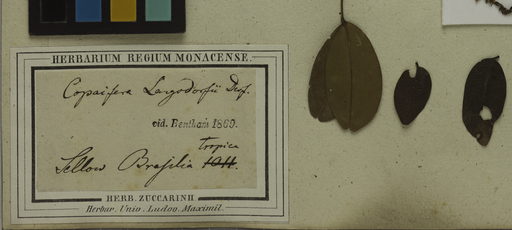 HERBARIUM REGIUM MONACENSE.
Copaifera Langsdorfii Desf.
vid. Bentham 1869.
tropica
Sellow Brasilia
HERB. ZUCCARINII
Herbar. Univ. Ludov. Maximil.